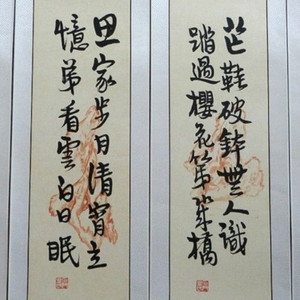 芒鞋破鉢無人識
踏過櫻花第幾橋
思家步月清宵立
憶弟看雲白日眠